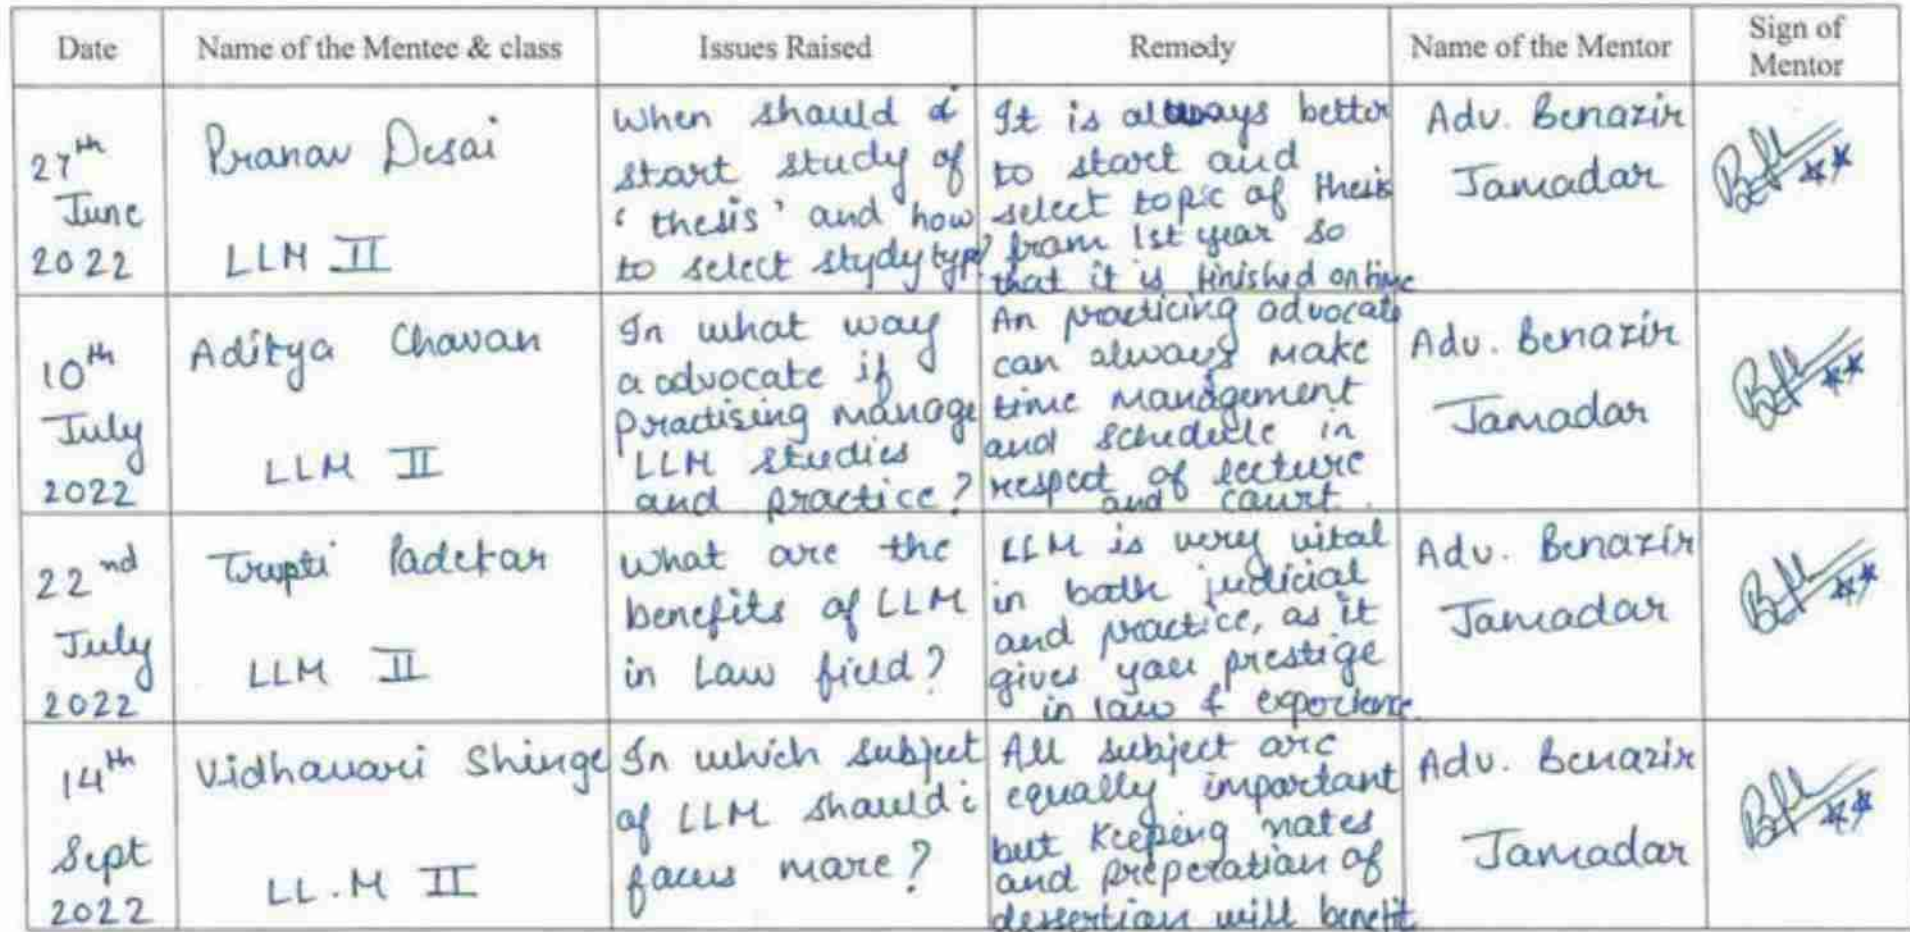 Date
Name of the Mentee & class
Issues Raised
Remedy
Name of the Mentor
Sign of
Mentor
27th
June
2022
Pranav Desai
LLM II
When should i
start study of
'thesis' and how
to select stydy type?
It is always better
to start and
select topic of thesis
from 1st year so
that it is finished on time
Adv. Benazir
Jamadar
10th
July
2022
Aditya Chavan
LLM II
In what way
a advocate if
Practising manage
LLM studies
and practice?
An practicing advocate
can always make
time management
and schedule in
respect of lecture
and court.
Adv. Benazir
Jamadar
22nd
July
2022
Trupti Padekar
LLM II
What are the
benefits of LLM
in Law field?
LLM is very vital
in both judicial
and practice, as it
gives you prestige
in law & experience.
Adv. Benazir
Jamadar
14th
Sept
2022
Vidhavari Shinge
LL.M II
In which subject
of LLM should i
focus more?
All subject are
equally important
but Keeping notes
and preperation of
dessertion will benefit
Adv. Benazir
Jamadar